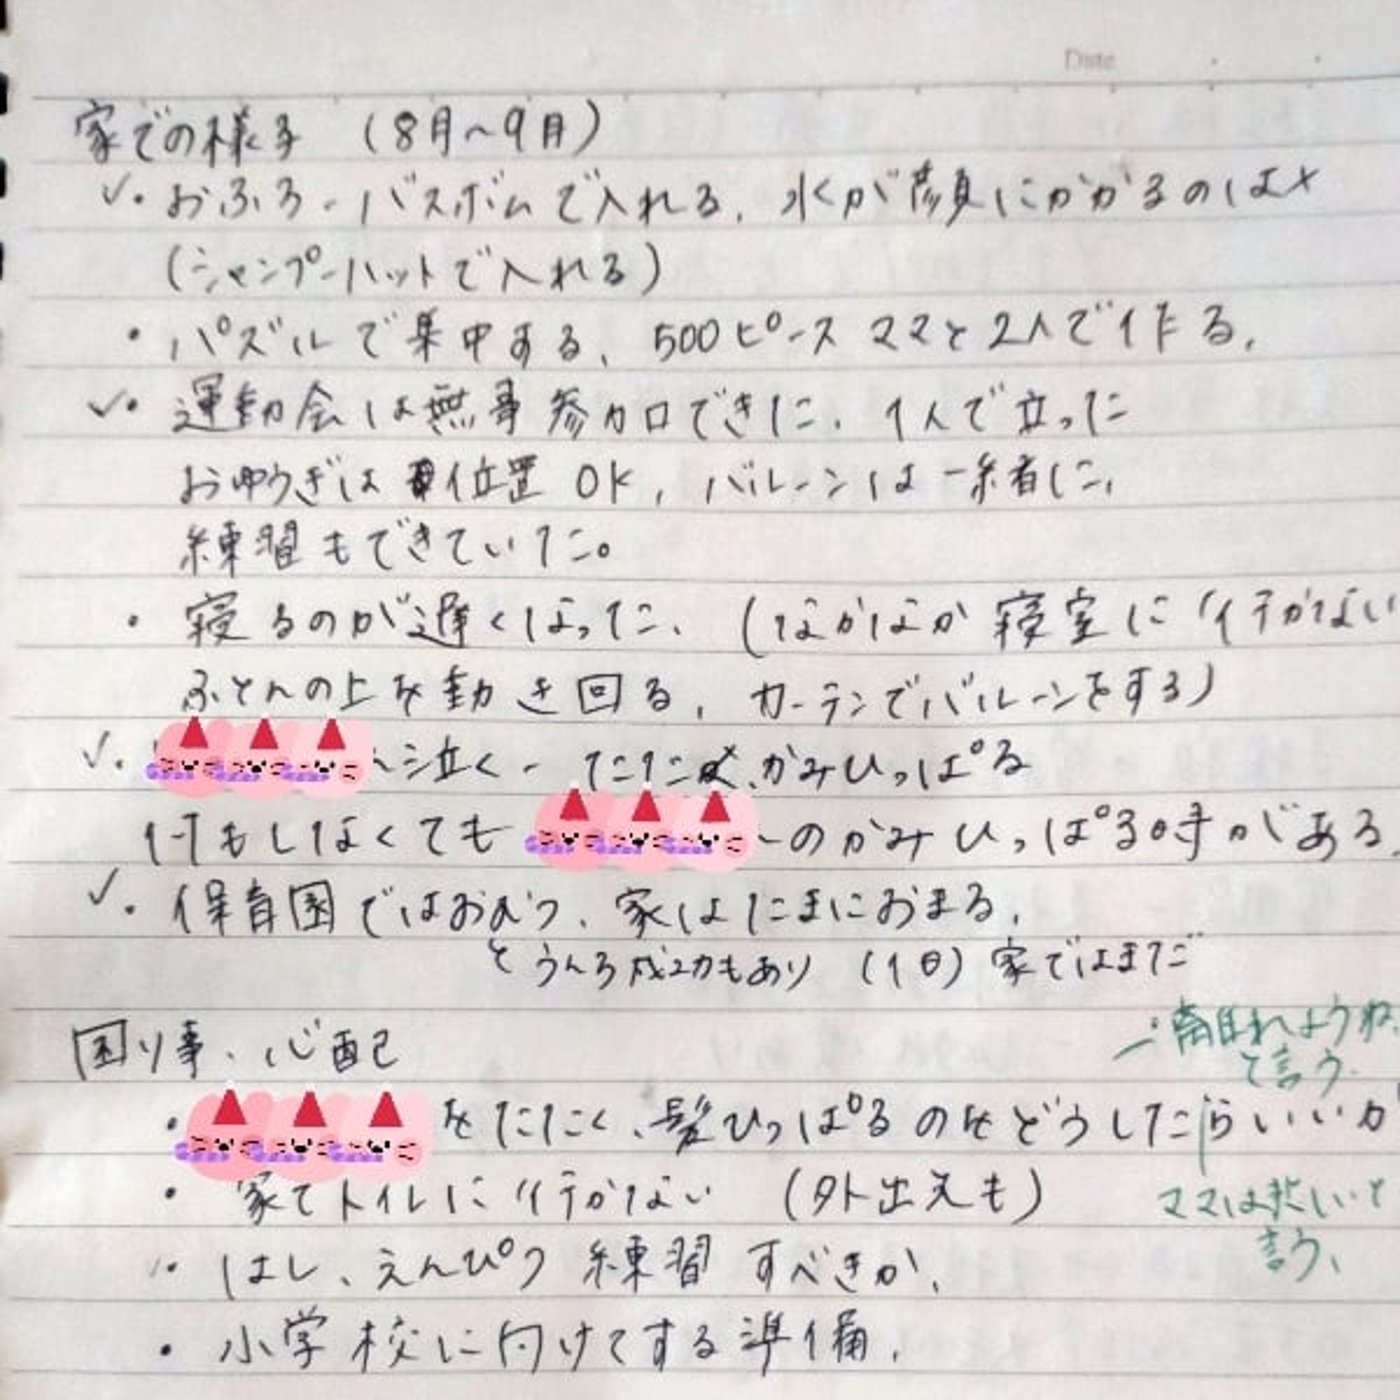 Date
家での様子 (8月~9月)
✓・おふろ - バスボムで入れる、水が顔にかかるのは×
(シャンプーハットで入れる)
・パズルで集中する、500ピース ママと2人で作る、
✓・運動会は無事参加できた、1人で立った
おゆうぎは位置 OK, バルーンは一緒に、
練習もできていた。
・寝るのが遅くなった、(なかなか寝室に行かない
ふとんの上を動き回る、カーテンでバルーンをする)
✓・へ泣く - たたく、かみひっぱる
何もしなくても のかみひっぱる時がある、
✓・保育園ではおむつ、家はたまにおまる、
とうんち成功もあり (1日) 家ではまだ
困り事、心配
・離れようね、
と言う
・をたたく、髪ひっぱるのをどうしたらいいか
・家でトイレに行かない (外出先も)
ママは悲しいと
言う、
・はし、えんぴつ 練習 すべきか、
・小学校に向けてする準備、